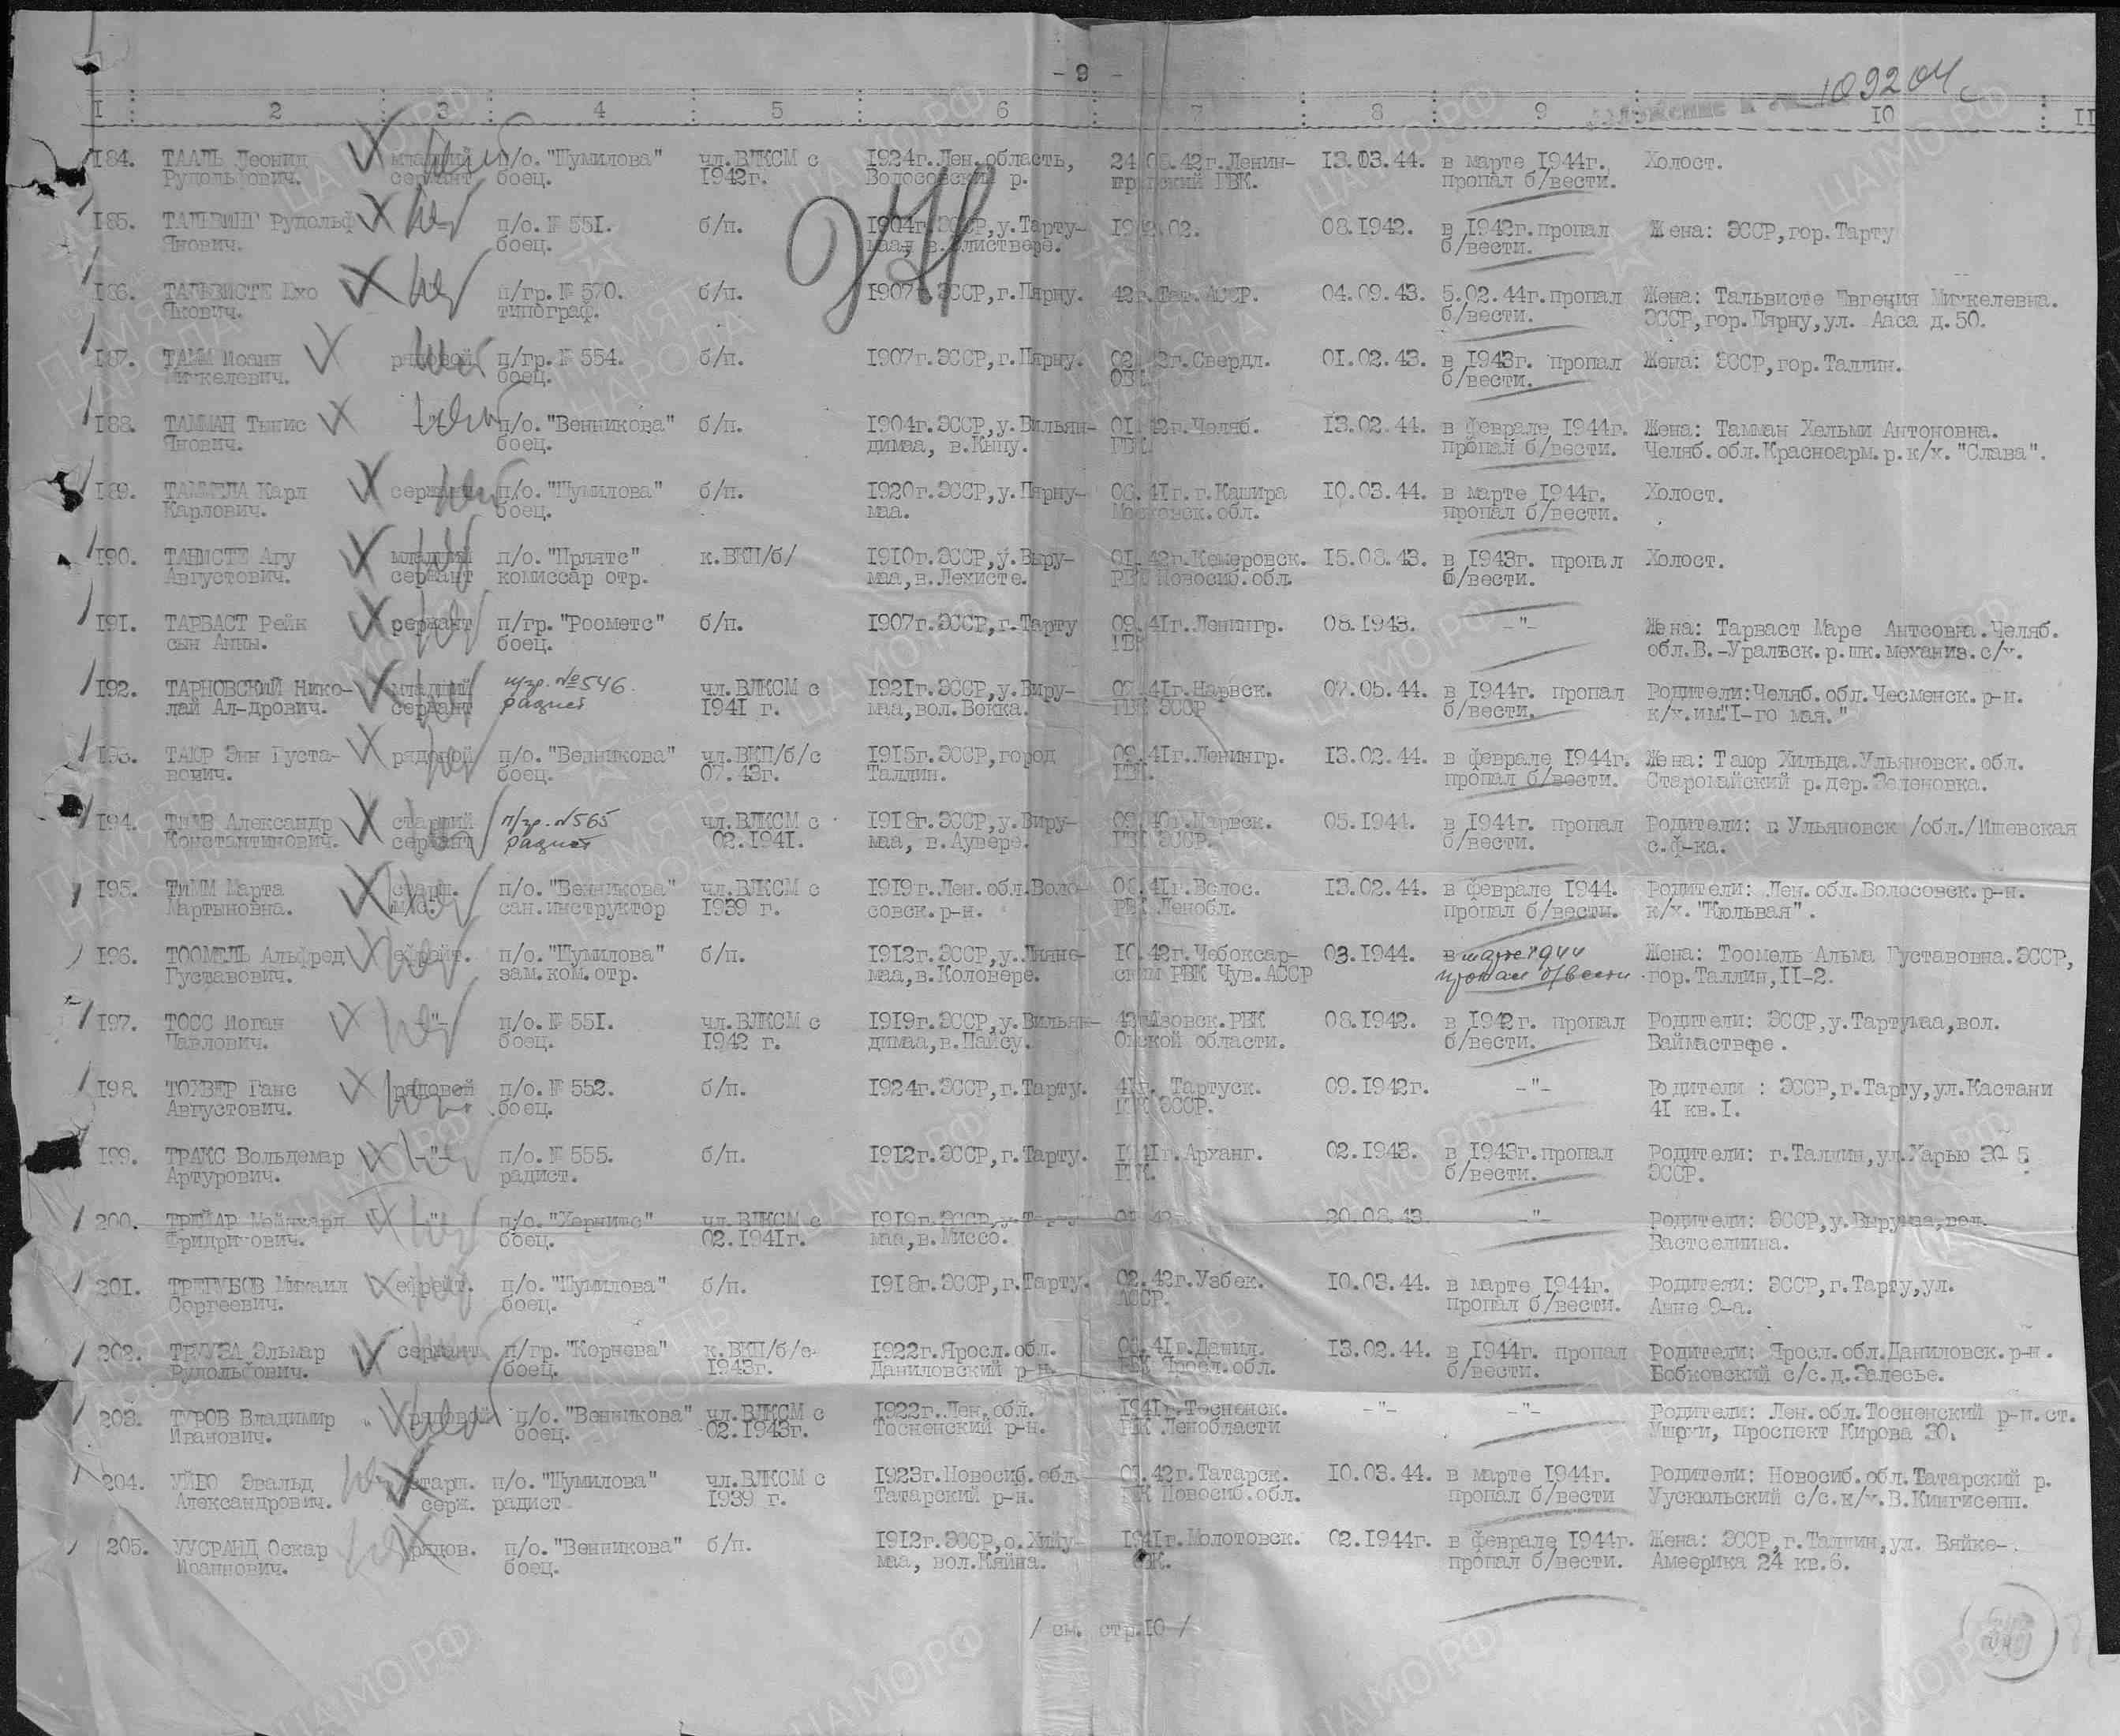 - 9 -
109204с
I 2 3 4 5 6 7 8 9 10 II
184. ТААЛЬ Леонид младший п/о. "Шумилова" чл.ВЛКСМ с 1924г.Лен.область, 24.05.42г.Ленин- 13.03.44. в марте 1944г. Холост.
Рудольфович. сержант боец. 1942г. Волосовский р. градский ГВК. пропал б/вести.
185. ТАЛЬВИНГ Рудольф п/о. № 551. б/п. 1904г.ЭССР,у.Тарту- 08.1942. в 1942г.пропал Жена: ЭССР,гор.Тарту
Янович. боец. маа, б/вести.
186. ТАЛЬВИСТЕ п/гр. № 570. б/п. 1907г.ЭССР,г.Пярну. 42г.Тат.АССР. 04.09.43. 5.02.44г.пропал Жена: Тальвисте Евгения Михкелевна.
Якович. типограф. б/вести. ЭССР,гор.Пярну,ул. Ааса д.50.
187. ТАММ Иоанн рядовой п/гр. № 554. б/п. 1907г.ЭССР,г.Пярну. Свердл. 01.02.43. в 1943г. пропал Жена: ЭССР,гор.Таллин.
Михкелевич. боец. б/вести.
188. ТАММАН Тынис п/о. "Венникова" б/п. 1904г.ЭССР,у.Вильян- 01.42г.Челяб. 13.02.44. в феврале 1944г. Жена: Тамман Хельми Антоновна.
Янович. боец. димаа, в.Кыпу. ГВК. пропал б/вести. Челяб.обл.Красноарм.р.к/х. "Слава".
189. ТАММЕЛА Карл сержант п/о. "Шумилова" б/п. 1920г.ЭССР,у.Пярну- 06.41г.г.Кашира 10.03.44. в марте 1944г. Холост.
Карлович. боец. маа. Московск.обл. пропал б/вести.
190. ТАНИСТЕ Агу младший п/о. "Прлятс" к.ВКП/б/ 1910г.ЭССР,у.Выру- 01.42г.Кемеровск. 15.08.43. в 1943г. пропал Холост.
Августович. сержант комиссар отр. маа,в.Лехисте. РВК Новосиб.обл. б/вести.
191. ТАРВАСТ Рейн сержант п/гр. "Роометс" б/п. 1907г.ЭССР,г.Тарту 09.41г.Ленингр. 08.1943. -"- Жена: Тарваст Маре Антсовна.Челяб.
сын Анны. боец. ГВК обл.В.-Уральск.р.шк.механиз.с/х.
192. ТАРНОВСКИЙ Нико- младший п/гр. №546. чл.ВЛКСМ с 1921г.ЭССР,у.Виру- 07.41г.Нарвск. 07.05.44. в 1944г. пропал Родители:Челяб.обл.Чесменск.р-н.
лай Ал-дрович. сержант радист 1941 г. маа,вол.Вокка. ГВК ЭССР б/вести. к/х.им"I-го мая."
193. ТАЮР Энн Густа- рядовой п/о. "Венникова" чл.ВКП/б/с 1915г.ЭССР,город 09.41г.Ленингр. 13.02.44. в феврале 1944г. Жена: Таюр Хильда.Ульяновск.обл.
вович. боец. 07.43г. Таллин. ГВК. пропал б/вести. Старомайский р.дер.Зеленовка.
194. Александр старший п/гр. №565 чл.ВЛКСМ с 1918г.ЭССР,у.Виру- Нарвск. 05.1944. в 1944г. пропал Родители: г.Ульяновск /обл./Ишевская
Константинович. сержант радист 02.1941. маа, в.Аувере. ГВК ЭССР. б/вести. с.ф-ка.
195. ТИММ Марта старш. п/о. "Венникова" чл.ВЛКСМ с 1919г.Лен.обл.Воло- 41г.Волос. 13.02.44. в феврале 1944. Родители: Лен.обл.Волосовск.р-н.
Мартыновна. м/с. сан.инструктор 1939 г. совск.р-н. РВК Ленобл. пропал б/вести. к/х."Кюльвая".
196. ТООМЕЛЬ Альфред ефрейт. п/о. "Шумилова" б/п. 1912г.ЭССР,у.Ляяне- 10.42г.Чебоксар- 03.1944. в марте 1944 Жена: Тоомель Альма Густавовна.ЭССР,
Густавович. зам.ком.отр. маа,в.Коловере. ским РВК Чув.АССР пропал б/вести гор.Таллин,II-2.
197. ТОСС Иоган -"- п/о. № 551. чл.ВЛКСМ с 1919г.ЭССР,у.Вильян- Азовск.РВК 08.1942. в 1942г. пропал Родители: ЭССР,у.Тартумаа,вол.
Павлович. боец. 1942 г. димаа,в.Пайсу. Омской области. б/вести. Ваймаствере.
198. ТОХВЕР Ганс рядовой п/о. № 552. б/п. 1924г.ЭССР,г.Тарту. 41г. Тартуск. 09.1942г. -"- Родители : ЭССР,г.Тарту,ул.Кастани
Августович. боец. ГВК ЭССР. 41 кв.I.
199. ТРАКС Вольдемар -"- п/о. № 555. б/п. 1912г.ЭССР,г.Тарту. 1941г.Арханг. 02.1943. в 1943г.пропал Родители: г.Таллин,ул.Харью 30-5
Артурович. радист. ГВК. б/вести. ЭССР.
200. Мейнхард -"- п/о. "Хернитс" чл.ВЛКСМ с 1919г.ЭССР, 20.08.43. -"- Родители: ЭССР,у.Вырумаа,вол.
Фридрихович. боец. 02.1941г. маа,в.Миссо. Вастселиина.
201. ТРЕГУБОВ Михаил ефрейт. п/о. "Шумилова" б/п. 1918г.ЭССР,г.Тарту. 02.42г.Узбек. 10.03.44. в марте 1944г. Родители: ЭССР,г.Тарту,ул.
Сергеевич. боец. АССР. пропал б/вести. Анне 9-а.
202. ТРУУЗА Эльмар сержант п/гр. "Корнева" к.ВКП/б/с- 1922г.Яросл.обл. 41г.Данил. 13.02.44. в 1944г. пропал Родители: Яросл.обл.Даниловск.р-н.
Рудольфович. боец. 1943г. Даниловский р-н. РВК Яросл.обл. б/вести. Бобковский с/с.д.Залесье.
203. ТУРОВ Владимир рядовой п/о. "Венникова" чл.ВЛКСМ с 1922г.Лен.обл. 1941г.Тосненск. -"- -"- Родители: Лен.обл.Тосненский р-н.ст.
Иванович. боец. 02.1943г. Тосненский р-н. РВК Ленобласти Ушаки, проспект Кирова 30.
204. УЙБО Эвальд старш. п/о. "Шумилова" чл.ВЛКСМ с 1923г.Новосиб.обл. 42г.Татарск. 10.03.44. в марте 1944г. Родители: Новосиб.обл.Татарский р.
Александрович. серж. радист 1939 г. Татарский р-н. Новосиб.обл. пропал б/вести Уускюльский с/с.к/х.В.Кингисепп.
205. УУСРАНД Оскар рядов. п/о. "Венникова" б/п. 1912г.ЭССР,о.Хийу- 1941г.Молотовск. 02.1944г. в феврале 1944г. Жена: ЭССР,г.Таллин,ул. Вяйке-
Иоаннович. боец. маа, вол.Кяйна. пропал б/вести. Амеерика 24 кв.6.
/ см. стр.10 /